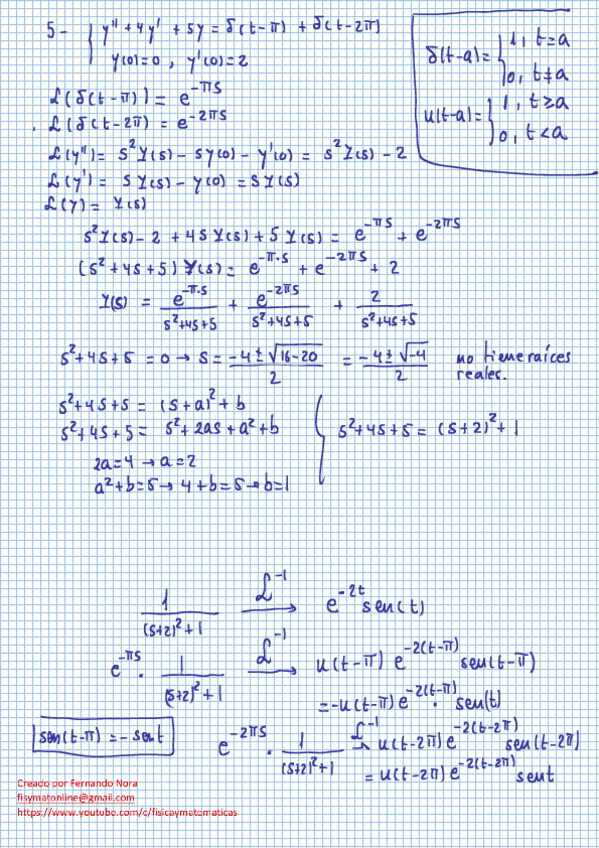 5- { y'' + 4y' + 5y = δ(t-π) + δ(t-2π)
y(0)=0 , y'(0)=2
δ(t-a) = { 1, t=a
0, t≠a
u(t-a) = { 1, t≥a
0, t<a
ℒ(δ(t-π)) = e^{-πs}
ℒ(δ(t-2π)) = e^{-2πs}
ℒ(y'') = s²Y(s) - sy(0) - y'(0) = s²Y(s) - 2
ℒ(y') = sY(s) - y(0) = sY(s)
ℒ(y) = Y(s)
s²Y(s) - 2 + 4sY(s) + 5Y(s) = e^{-πs} + e^{-2πs}
(s²+4s+5) Y(s) = e^{-π·s} + e^{-2πs} + 2
Y(s) = e^{-π·s}/(s²+4s+5) + e^{-2πs}/(s²+4s+5) + 2/(s²+4s+5)
s²+4s+5 = 0 → s = (-4±√(16-20))/2 = (-4±√-4)/2 no tiene raíces
reales.
s²+4s+5 = (s+a)²+b
s²+4s+5 = s²+2as+a²+b
2a=4 → a=2
a²+b=5 → 4+b=5 → b=1
{ s²+4s+5 = (s+2)²+1
1/((s+2)²+1) ℒ⁻¹→ e^{-2t} sen(t)
e^{-πs} · 1/((s+2)²+1) ℒ⁻¹→ u(t-π) e^{-2(t-π)} sen(t-π)
= -u(t-π) e^{-2(t-π)} · sen(t)
sen(t-π) = -sen t
e^{-2πs} · 1/((s+2)²+1) ℒ⁻¹→ u(t-2π) e^{-2(t-2π)} sen(t-2π)
= u(t-2π) e^{-2(t-2π)} sen t
Creado por Fernando Nora
fisymatonline@gmail.com
https://www.youtube.com/c/fisicaymatematicas